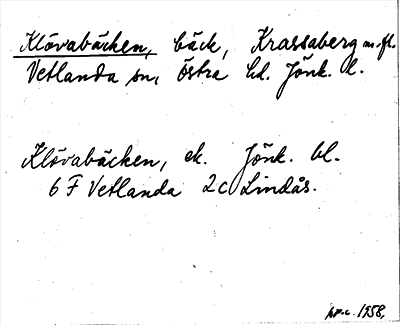 Klövabäcken, bäck, Krassaberg m. fl.
Vetlanda sn, östra hd. Jönk. l.
Klövabäcken, ek. Jönk. bl.
6 F Vetlanda 2c Lindås.
1958,